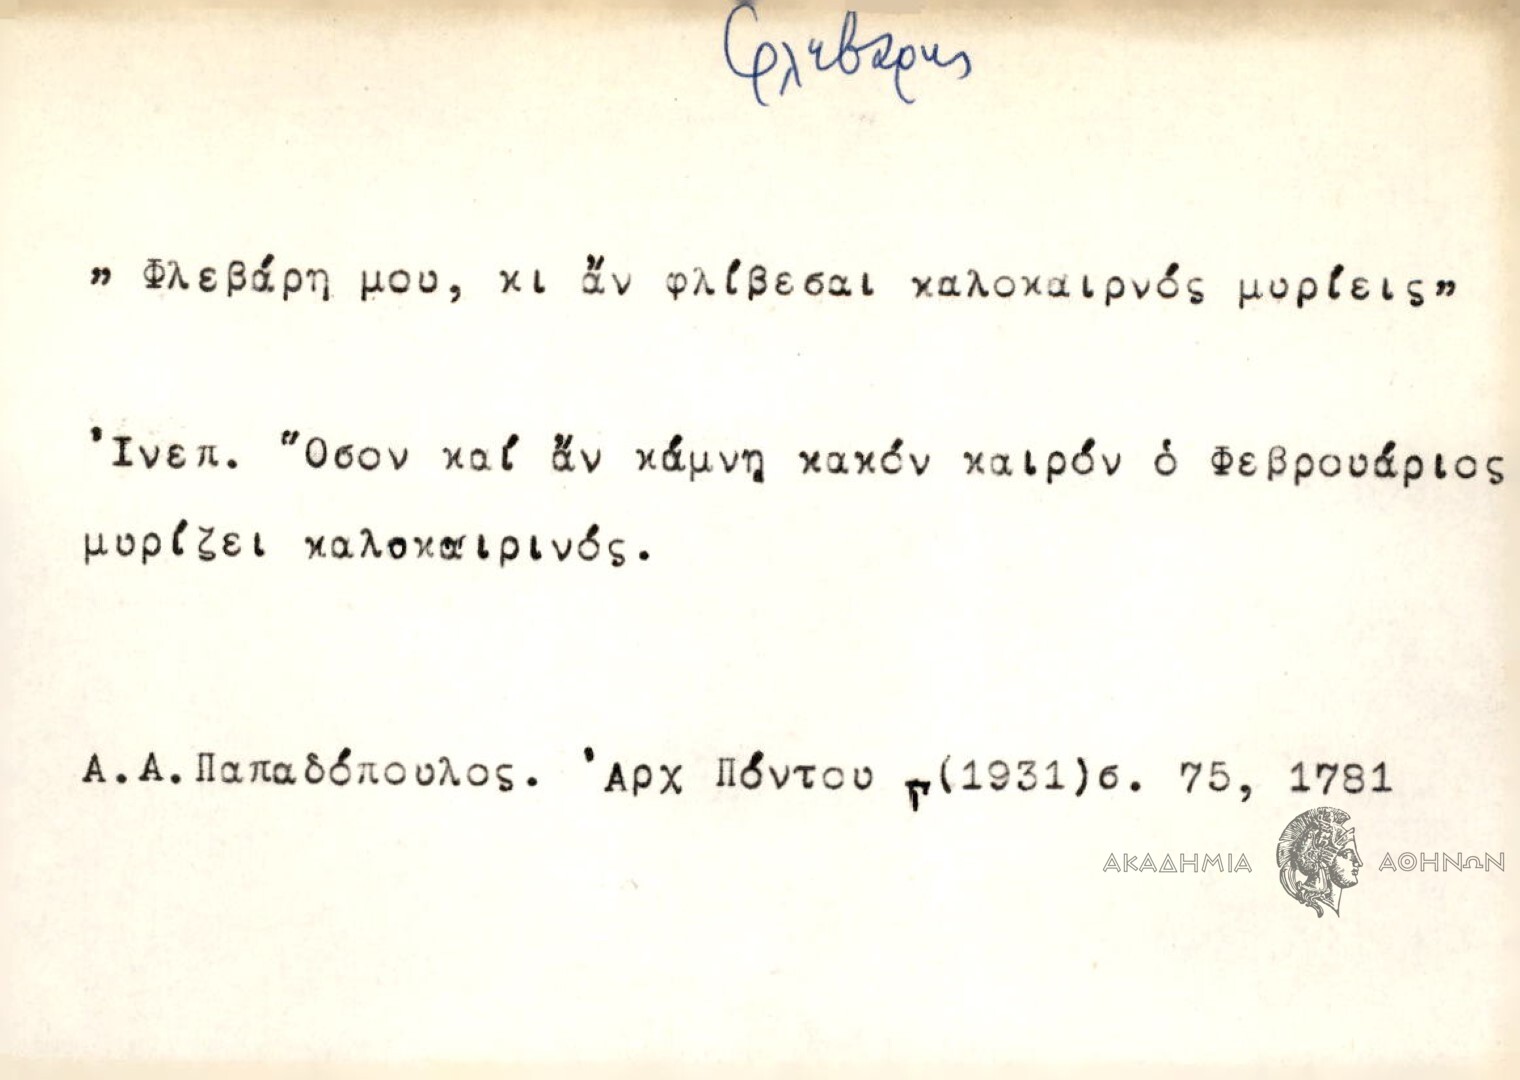 Φλεβάρης
„ Φλεβάρη μου, κι ἄν φλίβεσαι καλοκαιρνός μυρίεις„
Ἰνεπ. Ὅσον καί ἄν κάμνῃ κακόν καιρόν ὁ Φεβρουάριος
μυρίζει καλοκαιρινός.
Α.Α.Παπαδόπουλος. Ἀρχ Πόντου Γ(1931)σ. 75, 1781
ΑΚΑΔΗΜΙΑ ΑΘΗΝΩΝ